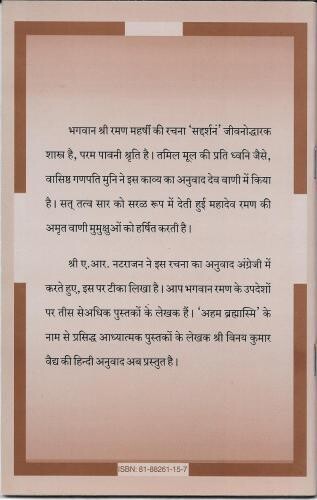 भगवान श्री रमण महर्षी की रचना ‘सद्दर्शनं’ जीवनोद्धारक
शास्त्र है, परम पावनी श्रृति है। तमिल मूल की प्रति ध्वनि जैसे,
वासिष्ठ गणपति मुनि ने इस काव्य का अनुवाद देव वाणी में किया
है। सत् तत्व सार को सरळ रूप में देती हुई महादेव रमण की
अमृत वाणी मुमुक्षुओं को हर्षित करती है।
श्री ए.आर. नटराजन ने इस रचना का अनुवाद अंग्रेजी में
करते हुए, इस पर टीका लिखा है। आप भगवान रमण के उपदेशों
पर तीस सेअधिक पुस्तकों के लेखक हैं। ‘अहम ब्रह्मास्मि’ के
नाम से प्रसिद्ध आध्यात्मक पुस्तकों के लेखक श्री विनय कुमार
वैद्य की हिन्दी अनुवाद अब प्रस्तुत है।
ISBN: 81-88261-15-7